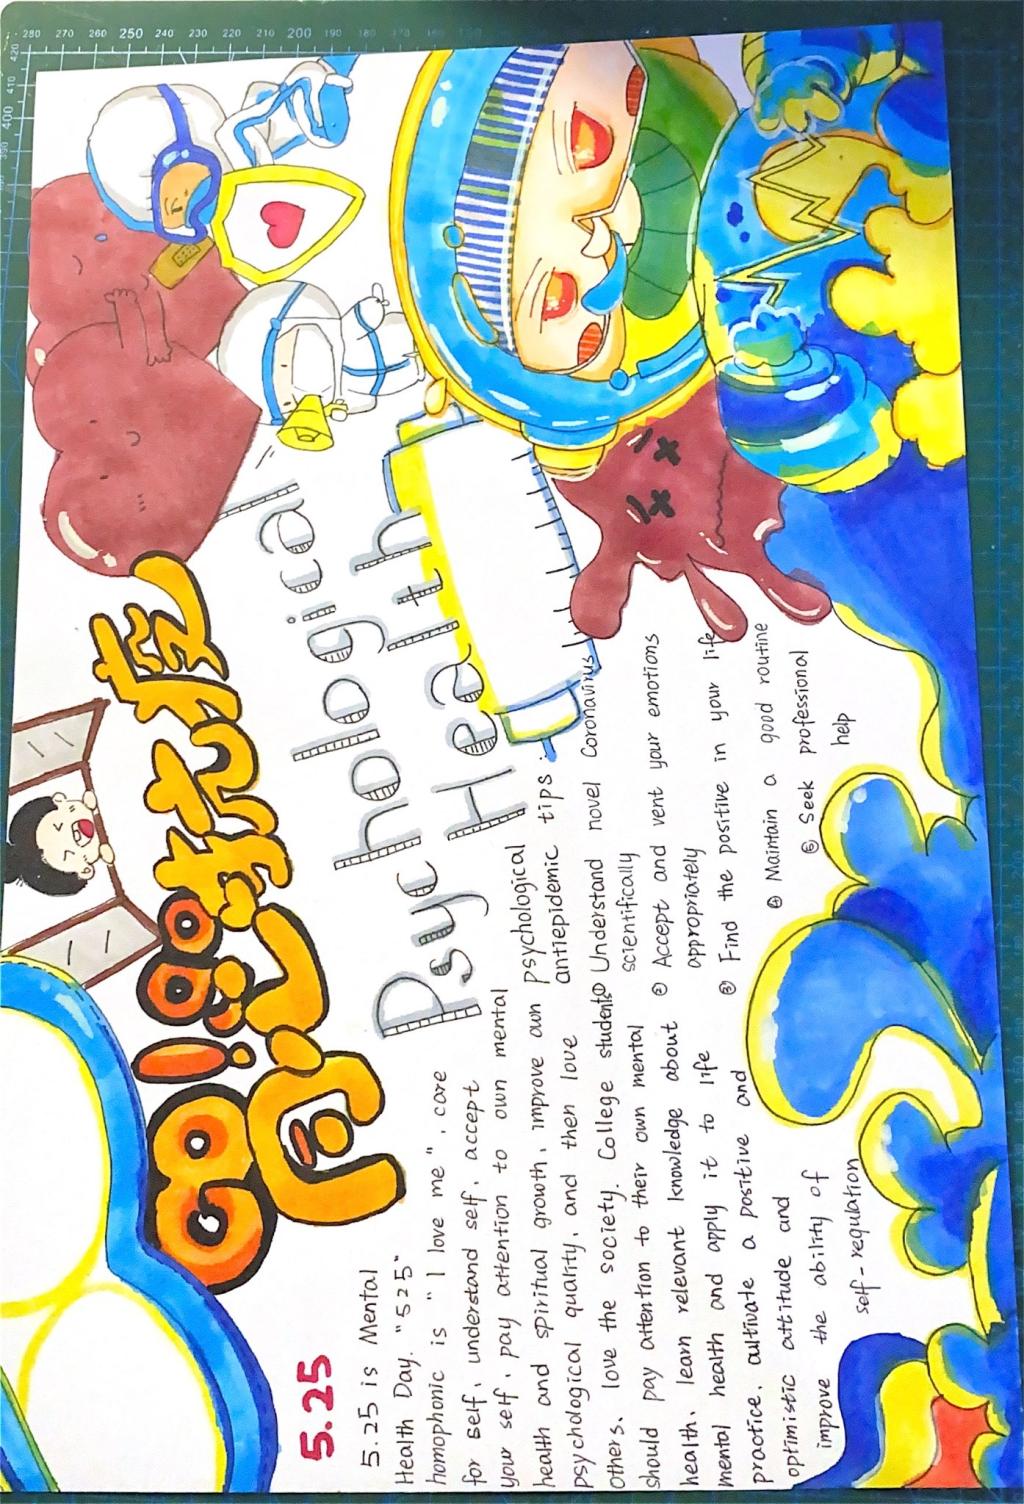 5.25
5.25 is Mental
Health Day. "525"
homophonic is "I love me", care
for self, understand self, accept
your self, pay attention to own mental
health and spiritual growth, improve own
psychological quality, and then love
others, love the society. College students
should pay attention to their own mental
health, learn relevant knowledge about
mental health and apply it to life
practice, cultivate a positive and
optimistic attitude and
improve the ability of
self-regulation
Psychological
Health
psychological
antiepidemic tips:
① Understand novel Coronavirus
scientifically
② Accept and vent your emotions
appropriately
③ Find the positive in your life
④ Maintain a good routine
⑤ Seek professional
help
280 270 260 250 240 230 220 210 200 190 180 170
420
410
400
390